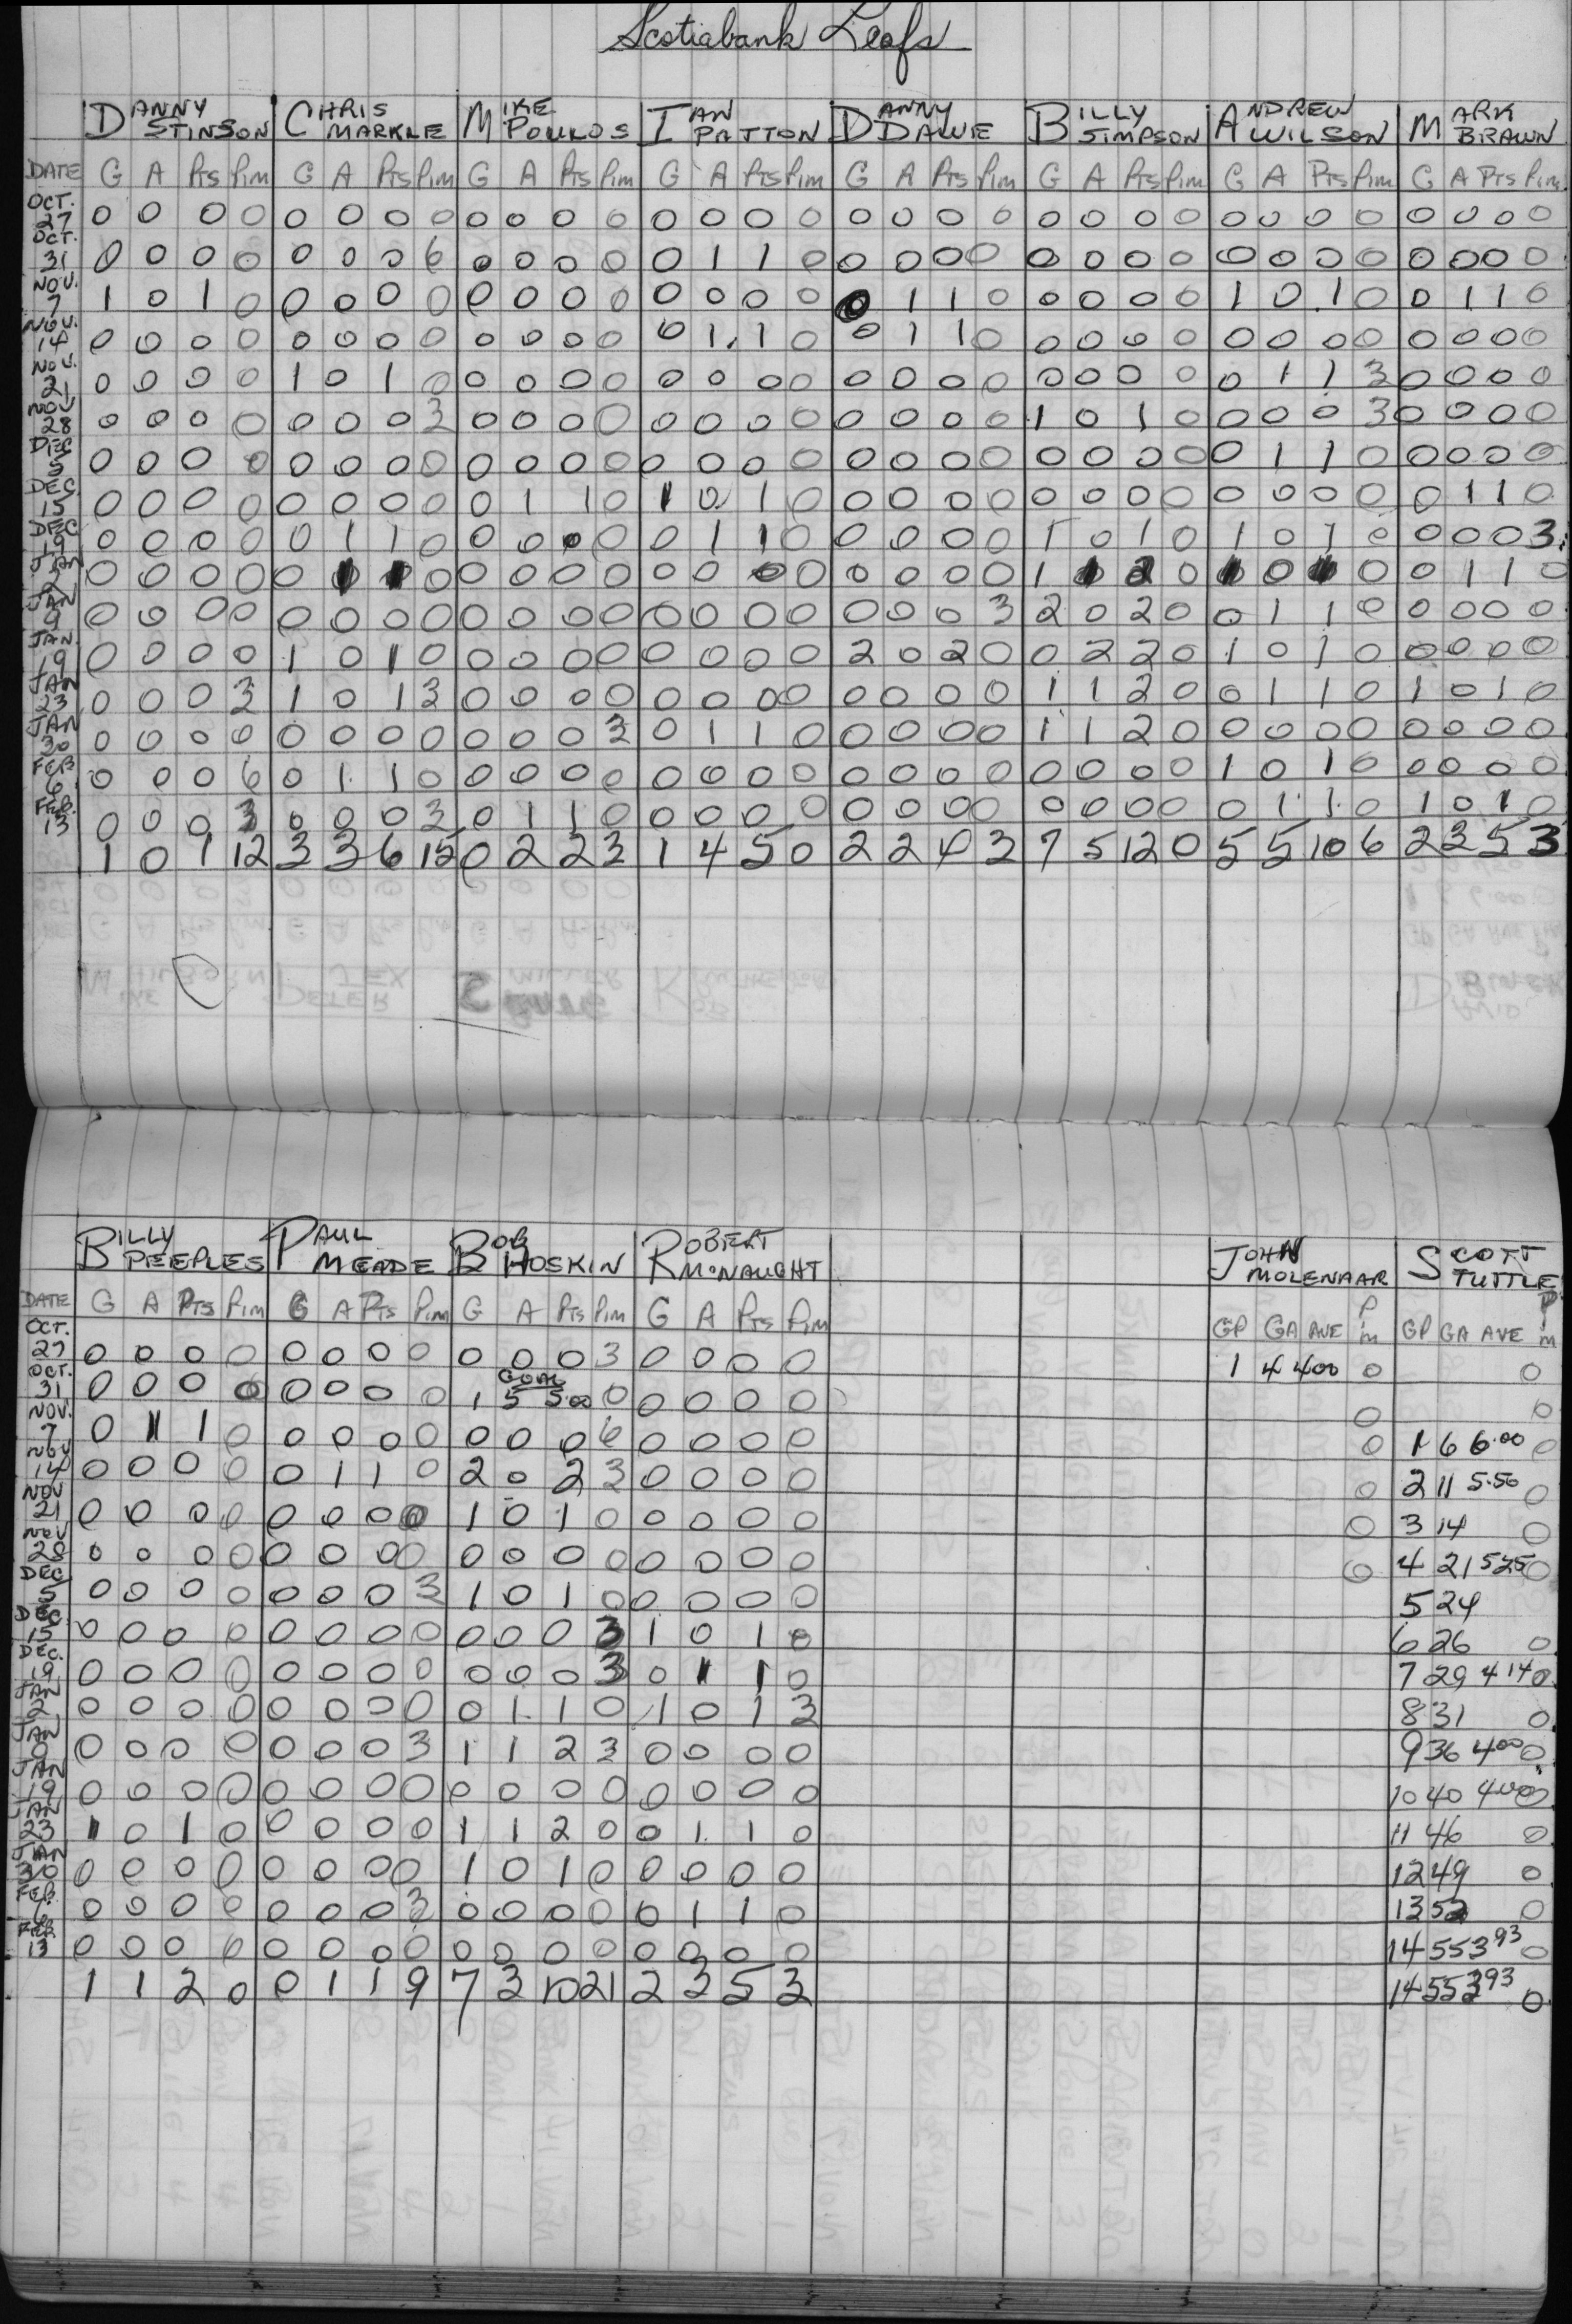 Scotiabank Leafs
DANNY STINSON CHRIS MARKLE MIKE POULOS IAN PATTON DANNY DALVIE BILLY SIMPSON ANDREW WILSON MARK BRAWN
DATE G A Pts Pim G A Pts Pim G A Pts Pim G A Pts Pim G A Pts Pim G A Pts Pim G A Pts Pim G A Pts Pim
OCT. 27 0 0 0 0 0 0 0 0 0 0 0 0 0 0 0 0 0 0 0 0 0 0 0 0 0 0 0 0 0 0 0 0
OCT. 31 0 0 0 0 0 0 0 6 0 0 0 0 0 1 1 0 0 0 0 0 0 0 0 0 0 0 0 0 0 0 0 0
NOV. 7 1 0 1 0 0 0 0 0 0 0 0 0 0 0 0 0 0 1 1 0 0 0 0 0 1 0 1 0 0 1 1 0
NOV. 14 0 0 0 0 0 0 0 0 0 0 0 0 0 1 1 0 0 1 1 0 0 0 0 0 0 0 0 0 0 0 0 0
NOV. 21 0 0 0 0 1 0 1 0 0 0 0 0 0 0 0 0 0 0 0 0 0 0 0 0 0 1 1 3 0 0 0 0
NOV 28 0 0 0 0 0 0 0 3 0 0 0 0 0 0 0 0 0 0 0 0 1 0 1 0 0 0 0 3 0 0 0 0
DEC 5 0 0 0 0 0 0 0 0 0 0 0 0 0 0 0 0 0 0 0 0 0 0 0 0 0 1 1 0 0 0 0 0
DEC 15 0 0 0 0 0 0 0 0 0 1 1 0 1 0 1 0 0 0 0 0 0 0 0 0 0 0 0 0 0 1 1 0
DEC 19 0 0 0 0 0 1 1 0 0 0 0 0 0 1 1 0 0 0 0 0 1 0 1 0 1 0 1 0 0 0 0 3
JAN 2 0 0 0 0 0 1 1 0 0 0 0 0 0 0 0 0 0 0 0 0 1 1 2 0 0 0 0 1 1 0
JAN 9 0 0 0 0 0 0 0 0 0 0 0 0 0 0 0 0 0 0 0 3 2 0 2 0 0 1 1 0 0 0 0 0
JAN. 19 0 0 0 0 1 0 1 0 0 0 0 0 0 0 0 0 2 0 2 0 0 2 2 0 1 0 1 0 0 0 0 0
JAN 23 0 0 0 3 1 0 1 3 0 0 0 0 0 0 0 0 0 0 0 0 1 1 2 0 0 1 1 0 1 0 1 0
JAN 30 0 0 0 0 0 0 0 0 0 0 0 3 0 1 1 0 0 0 0 0 1 1 2 0 0 0 0 0 0 0 0 0
FEB 6 0 0 0 6 0 1 1 0 0 0 0 0 0 0 0 0 0 0 0 0 0 0 0 0 1 0 1 0 0 0 0 0
FEB. 13 0 0 0 3 0 0 0 3 0 1 1 0 0 0 0 0 0 0 0 0 0 0 0 0 0 1 1 0 1 0 1 0
1 0 1 12 3 3 6 15 0 2 2 3 1 4 5 0 2 2 4 3 7 5 12 0 5 5 10 6 2 3 5 3
BILLY PEEPLES PAUL MEADE BOB HOSKIN ROBERT McNAUGHT JOHN MOLENAAR SCOTT TUTTLE
DATE G A Pts Pim G A Pts Pim G A Pts Pim G A Pts Pim GP GA AVE Pim GP GA AVE Pim
OCT. 27 0 0 0 0 0 0 0 0 0 0 0 3 0 0 0 0 1 4 4.00 0 0
GOAL
OCT. 31 0 0 0 0 0 0 0 0 1 5 5.00 0 0 0 0 0 0 0
NOV. 7 0 1 1 0 0 0 0 0 0 0 0 6 0 0 0 0 0 1 6 6.00 0
NOV 14 0 0 0 0 0 1 1 0 2 0 2 3 0 0 0 0 0 2 11 5.50 0
NOV 21 0 0 0 0 0 0 0 0 1 0 1 0 0 0 0 0 0 3 14 0
NOV 28 0 0 0 0 0 0 0 0 0 0 0 0 0 0 0 0 0 4 21 5.25 0
DEC 5 0 0 0 0 0 0 0 3 1 0 1 0 0 0 0 0 5 24
DEC 15 0 0 0 0 0 0 0 0 0 0 0 3 1 0 1 0 6 26 0
DEC. 19 0 0 0 0 0 0 0 0 0 0 0 3 0 1 1 0 7 29 4 14 0
JAN 2 0 0 0 0 0 0 0 0 0 1 1 0 1 0 1 3 8 31 0
JAN 9 0 0 0 0 0 0 0 3 1 1 2 3 0 0 0 0 9 36 4 00 0
JAN 19 0 0 0 0 0 0 0 0 0 0 0 0 0 0 0 0 10 40 4 00 0
JAN 23 1 0 1 0 0 0 0 0 1 1 2 0 0 1 1 0 11 46 0
JAN 30 0 0 0 0 0 0 0 0 1 0 1 0 0 0 0 0 12 49 0
FEB. 6 0 0 0 0 0 0 0 3 0 0 0 0 0 1 1 0 13 52 0
FEB. 13 0 0 0 0 0 0 0 0 0 0 0 0 0 0 0 0 14 55 3 93 0
1 1 2 0 0 1 1 9 7 3 10 21 2 3 5 3 14 55 3 93 0